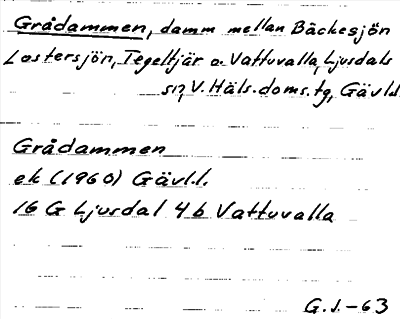 Grådammen, damm mellan Bäckesjön
Lostersjön, Tegeltjär o. Vattuvalla, Ljusdals
sn, V. Häls. doms. tg, Gävl.
Grådammen
ek (1960) Gävl.l.
16 G Ljusdal 4 b Vattuvalla
G.J.-63